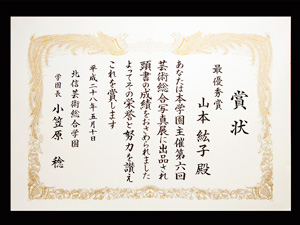 賞状
最優秀賞
山本 紘子 殿
あなたは本学園主催第六回
芸術総合写真展に出品され
頭書の成績をおさめられました
よってその栄誉と努力を讃え
これを賞します
平成二十八年五月十日
北信芸術総合学園
学園長 小笠原 稔